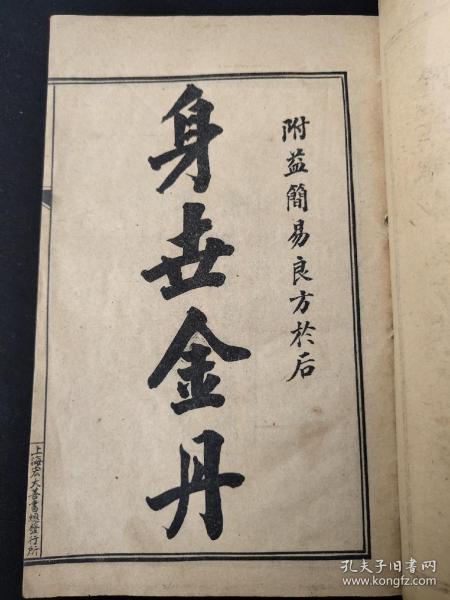 附益簡易良方於后
身世金丹
上海宏大善書總發行所
孔夫子旧书网
www.kongfz.com